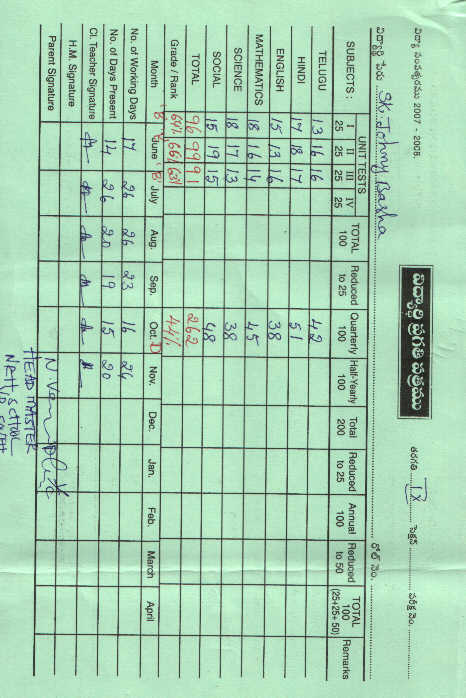 విద్యా సంవత్సరము 2007 - 2008.
విద్యార్థి ప్రగతి పత్రము
తరగతి IX సెక్షన్ వరుస నెం.
విద్యార్థి పేరు SK. Johny Basha రోల్ నెం.
SUBJECTS : UNIT TESTS I 25 II 25 III 25 IV 25 TOTAL 100 Reduced to 25 Quarterly 100 Half-Yearly 100 Total 200 Reduced to 25 Annual 100 Reduced to 50 TOTAL 100 (25+25+50) Remarks
TELUGU 13 16 16 42
HINDI 17 18 17 51
ENGLISH 15 13 16 38
MATHEMATICS 18 16 14 45
SCIENCE 18 17 13 38
SOCIAL 15 19 15 48
TOTAL 96 99 91 262
Grade / Rank 64% 66% 63% 44%
Month B June B July Aug. Sep. Oct. D Nov. Dec. Jan. Feb. March April
No. of Working Days 17 26 26 23 16 24
No. of Days Present 14 26 20 19 15 20
Cl. Teacher Signature
H.M. Signature
Parent Signature
HEAD MASTER